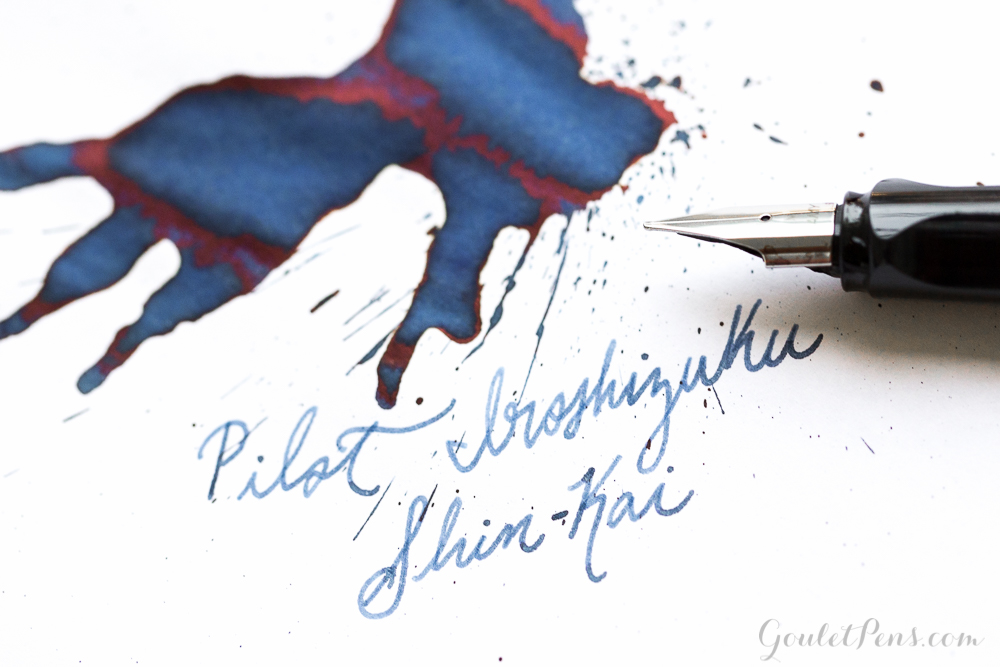 Pilot Iroshizuku
Shin-Kai
GouletPens.com